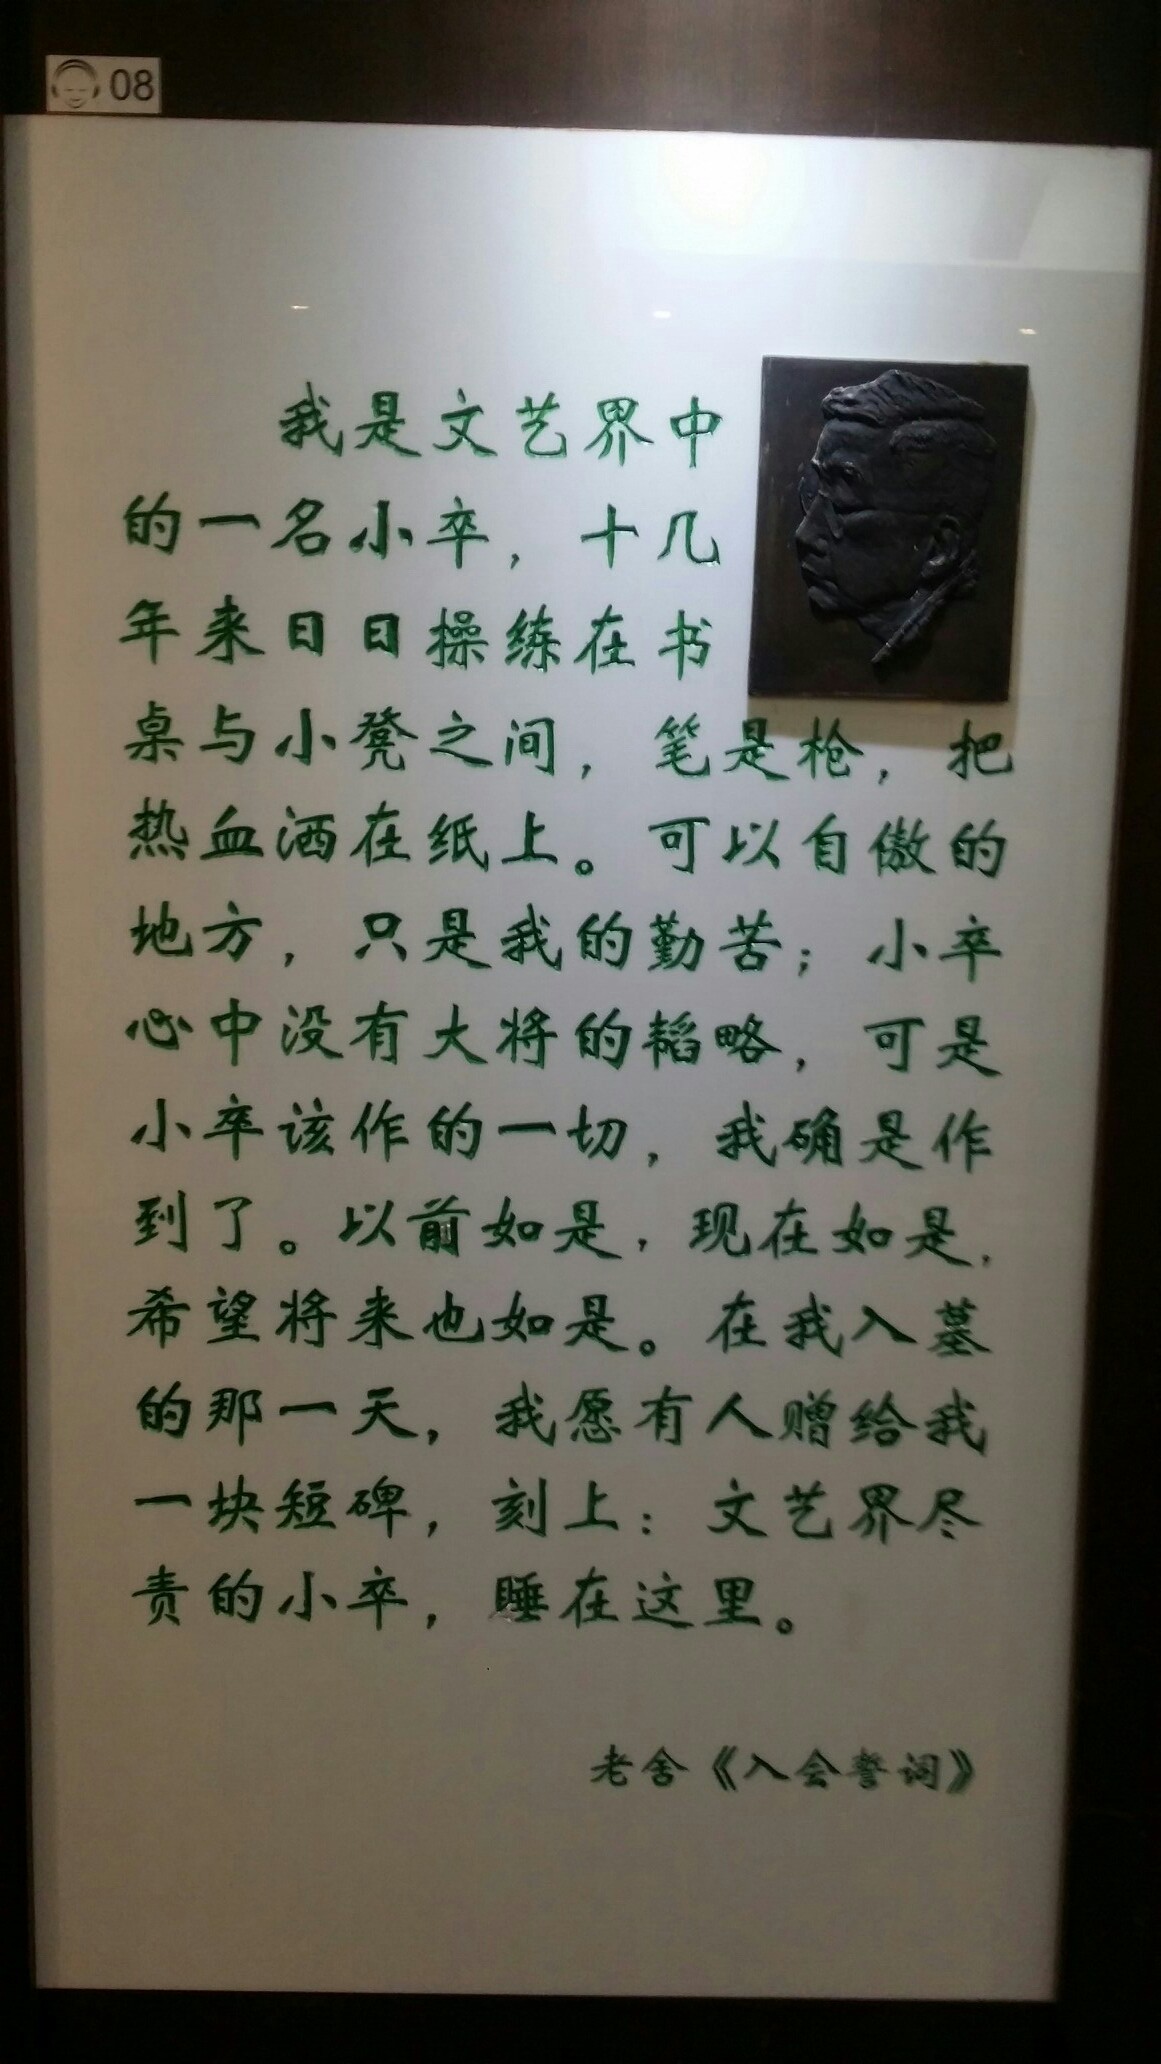 08
我是文艺界中
的一名小卒，十几
年来日日操练在书
桌与小凳之间，笔是枪，把
热血洒在纸上。可以自傲的
地方，只是我的勤苦；小卒
心中没有大将的韬略，可是
小卒该作的一切，我确是作
到了。以前如是，现在如是，
希望将来也如是。在我入墓
的那一天，我愿有人赠给我
一块短碑，刻上：文艺界尽
责的小卒，睡在这里。
老舍《入会誓词》